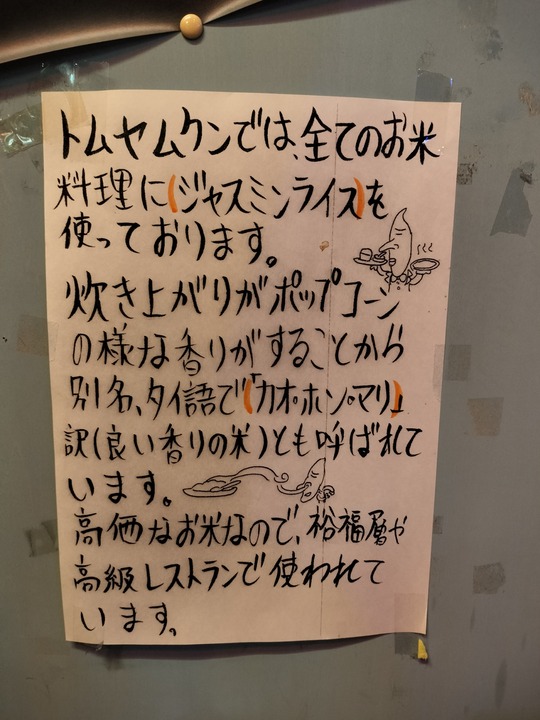 トムヤムクンでは、全てのお米
料理に(ジャスミンライス)を
使っております。
炊き上がりがポップコーン
の様な香りがすることから
別名、タイ語で「(カオ・ホン・マリ)」
訳(良い香りの米)とも呼ばれて
います。
高価なお米なので、裕福層や
高級レストランで使われて
います。